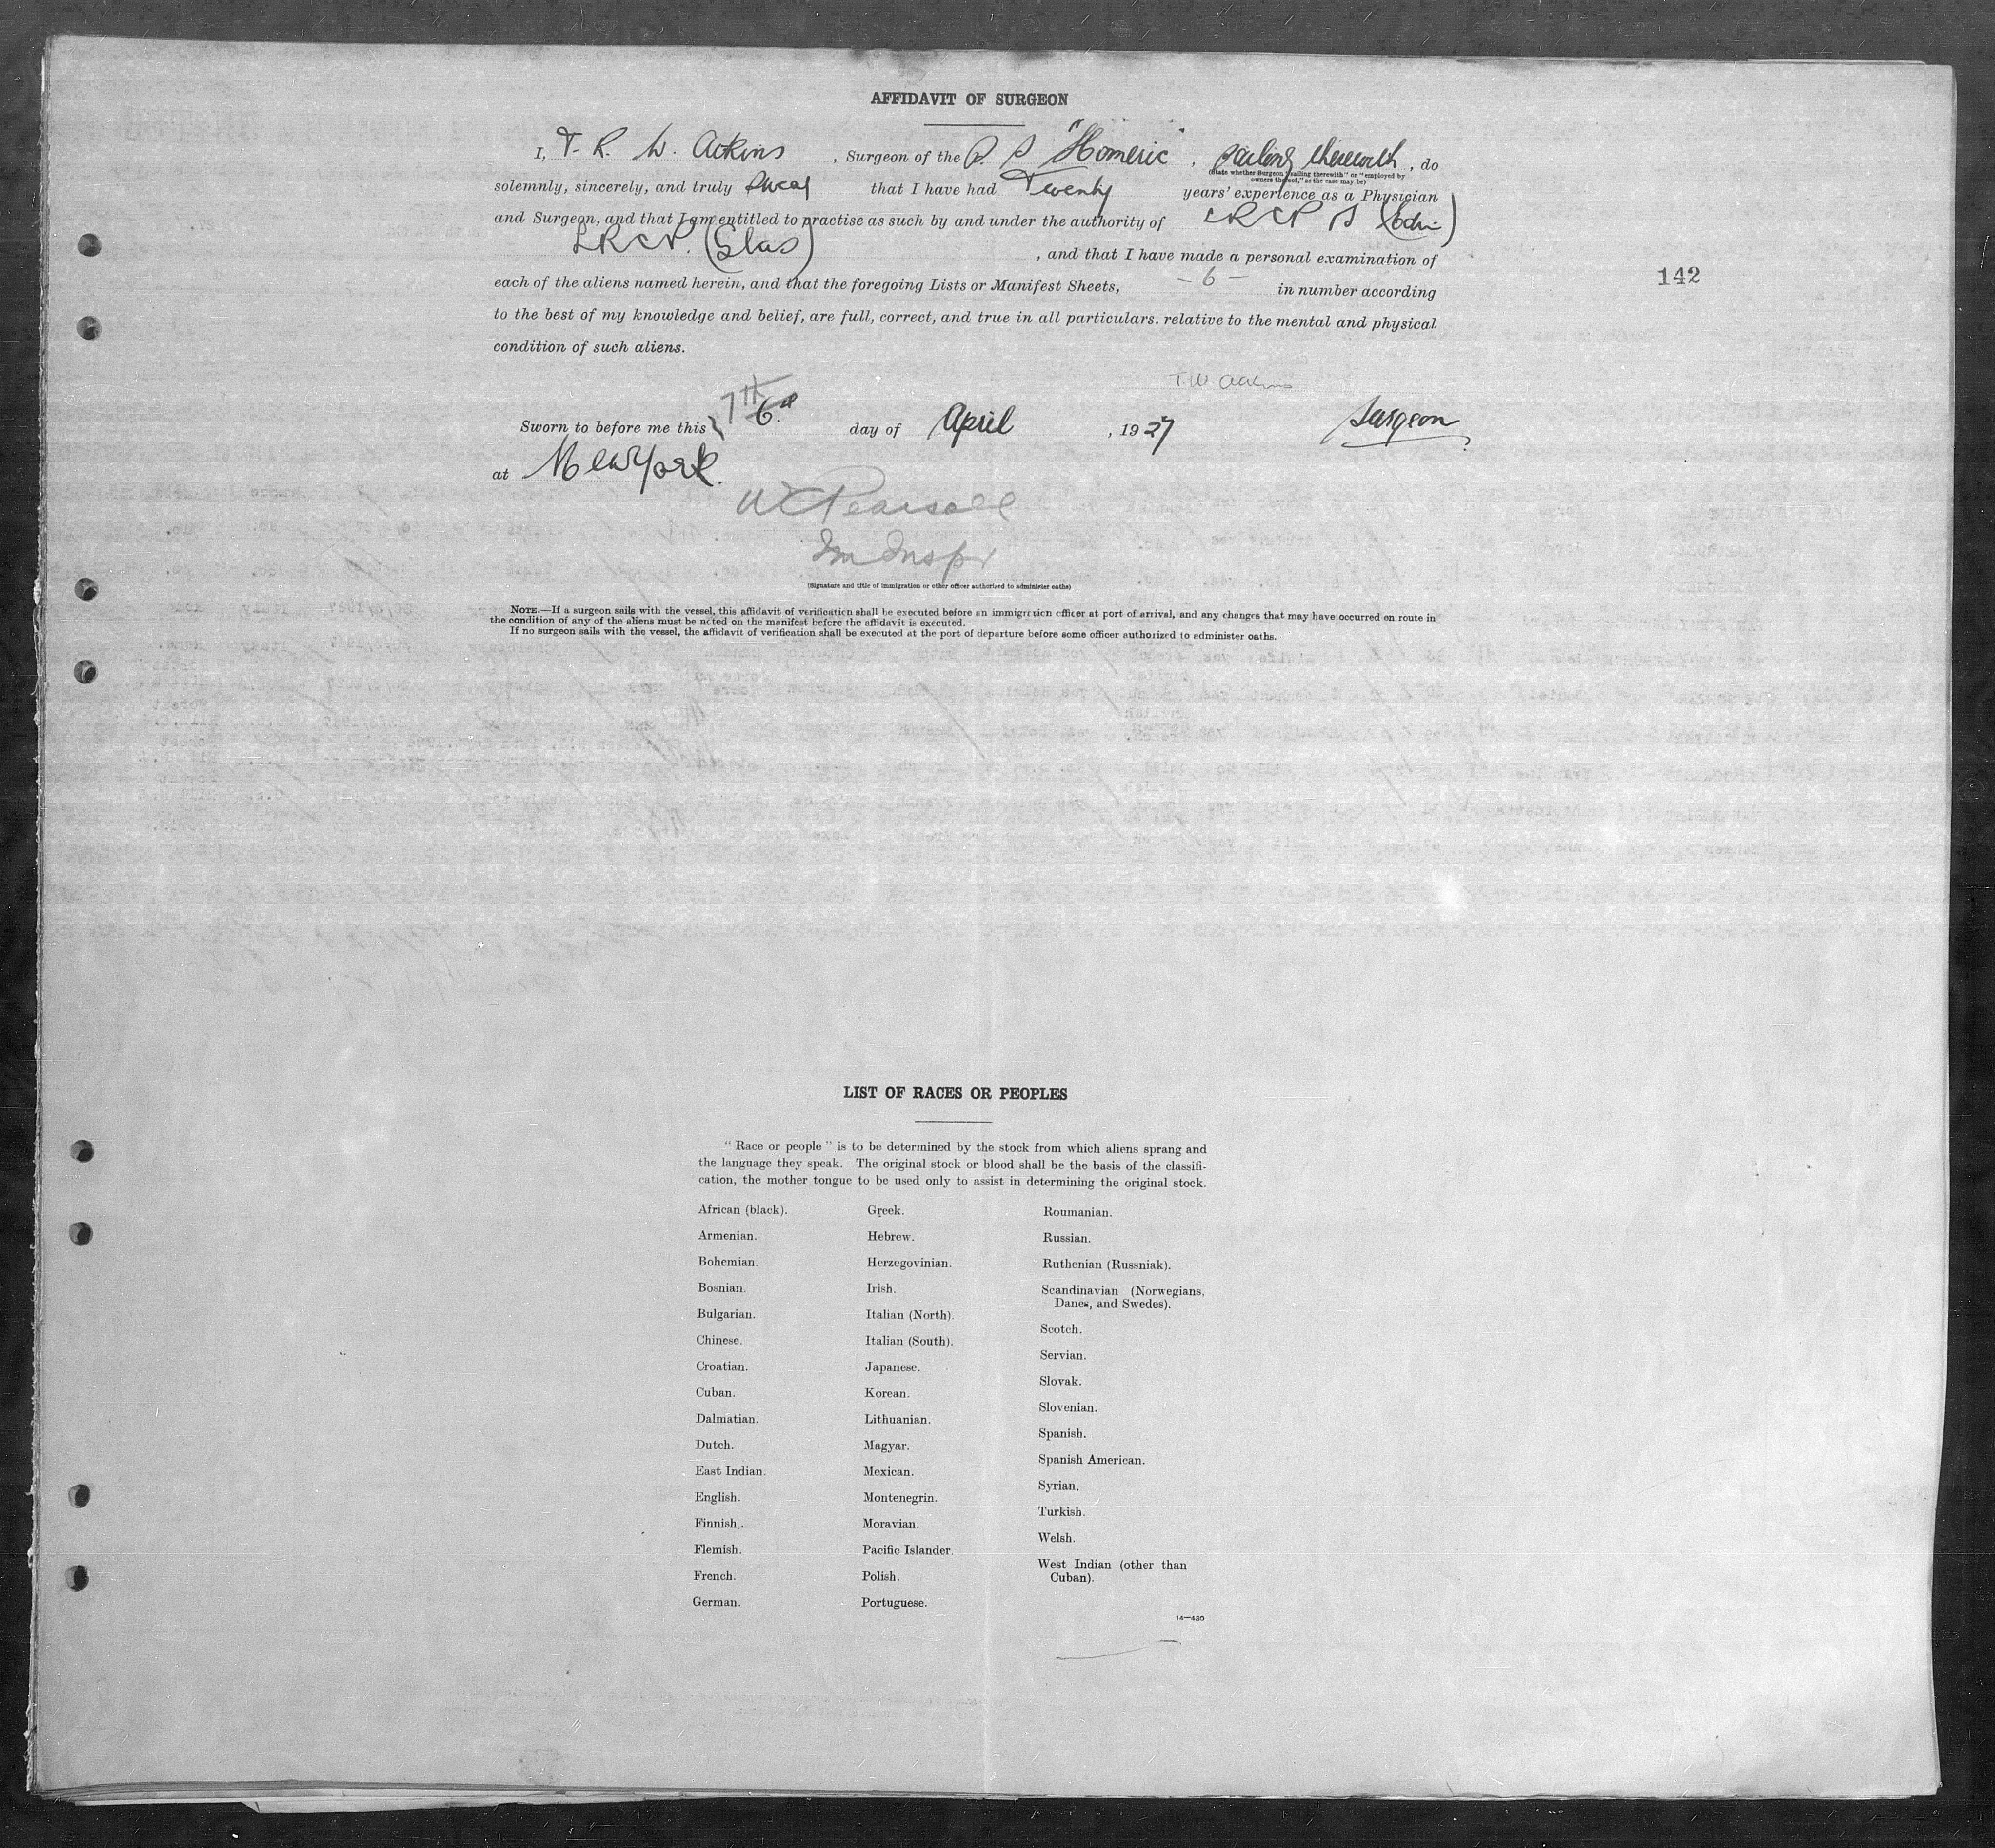 AFFIDAVIT OF SURGEON
I, T. R. W. Atkins, Surgeon of the S. S "Homeric", sailing therewith, do
(State whether Surgeon "sailing therewith" or "employed by
owners thereof," as the case may be)
solemnly, sincerely, and truly swear that I have had Twenty years' experience as a Physician
and Surgeon, and that I am entitled to practise as such by and under the authority of LRCP S (Edin)
LRCP. (Glas), and that I have made a personal examination of
each of the aliens named herein, and that the foregoing Lists or Manifest Sheets, -6- in number according
142
to the best of my knowledge and belief, are full, correct, and true in all particulars. relative to the mental and physical
condition of such aliens.
T. W Atkins
Surgeon
Sworn to before me this 7th 6th day of April, 1927
at New York.
W C Pearsall
Im Inspr
(Signature and title of immigration or other officer authorized to administer oaths)
NOTE.—If a surgeon sails with the vessel, this affidavit of verification shall be executed before an immigration officer at port of arrival, and any changes that may have occurred on route in
the condition of any of the aliens must be noted on the manifest before the affidavit is executed.
If no surgeon sails with the vessel, the affidavit of verification shall be executed at the port of departure before some officer authorized to administer oaths.
LIST OF RACES OR PEOPLES
"Race or people" is to be determined by the stock from which aliens sprang and
the language they speak. The original stock or blood shall be the basis of the classifi-
cation, the mother tongue to be used only to assist in determining the original stock.
African (black).
Armenian.
Bohemian.
Bosnian.
Bulgarian.
Chinese.
Croatian.
Cuban.
Dalmatian.
Dutch.
East Indian.
English.
Finnish.
Flemish.
French.
German.
Greek.
Hebrew.
Herzegovinian.
Irish.
Italian (North).
Italian (South).
Japanese.
Korean.
Lithuanian.
Magyar.
Mexican.
Montenegrin.
Moravian.
Pacific Islander.
Polish.
Portuguese.
Roumanian.
Russian.
Ruthenian (Russniak).
Scandinavian (Norwegians,
Danes, and Swedes).
Scotch.
Servian.
Slovak.
Slovenian.
Spanish.
Spanish American.
Syrian.
Turkish.
Welsh.
West Indian (other than
Cuban).
14—430